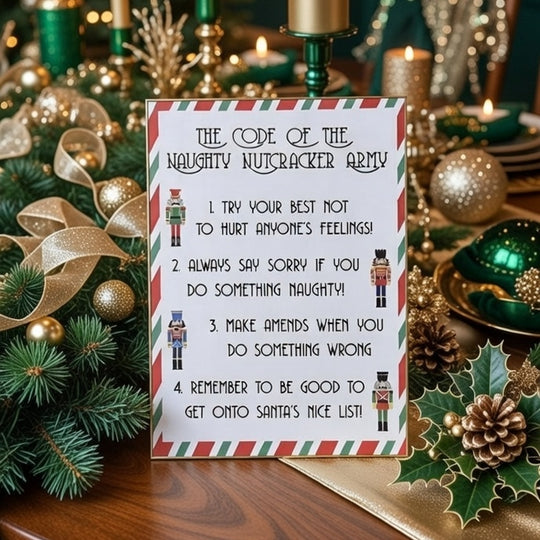 THE CODE OF THE
NAUGHTY NUTCRACKER ARMY
1. TRY YOUR BEST NOT
TO HURT ANYONE'S FEELINGS!
2. ALWAYS SAY SORRY IF YOU
DO SOMETHING NAUGHTY!
3. MAKE AMENDS WHEN YOU
DO SOMETHING WRONG
4. REMEMBER TO BE GOOD TO
GET ONTO SANTA'S NICE LIST!